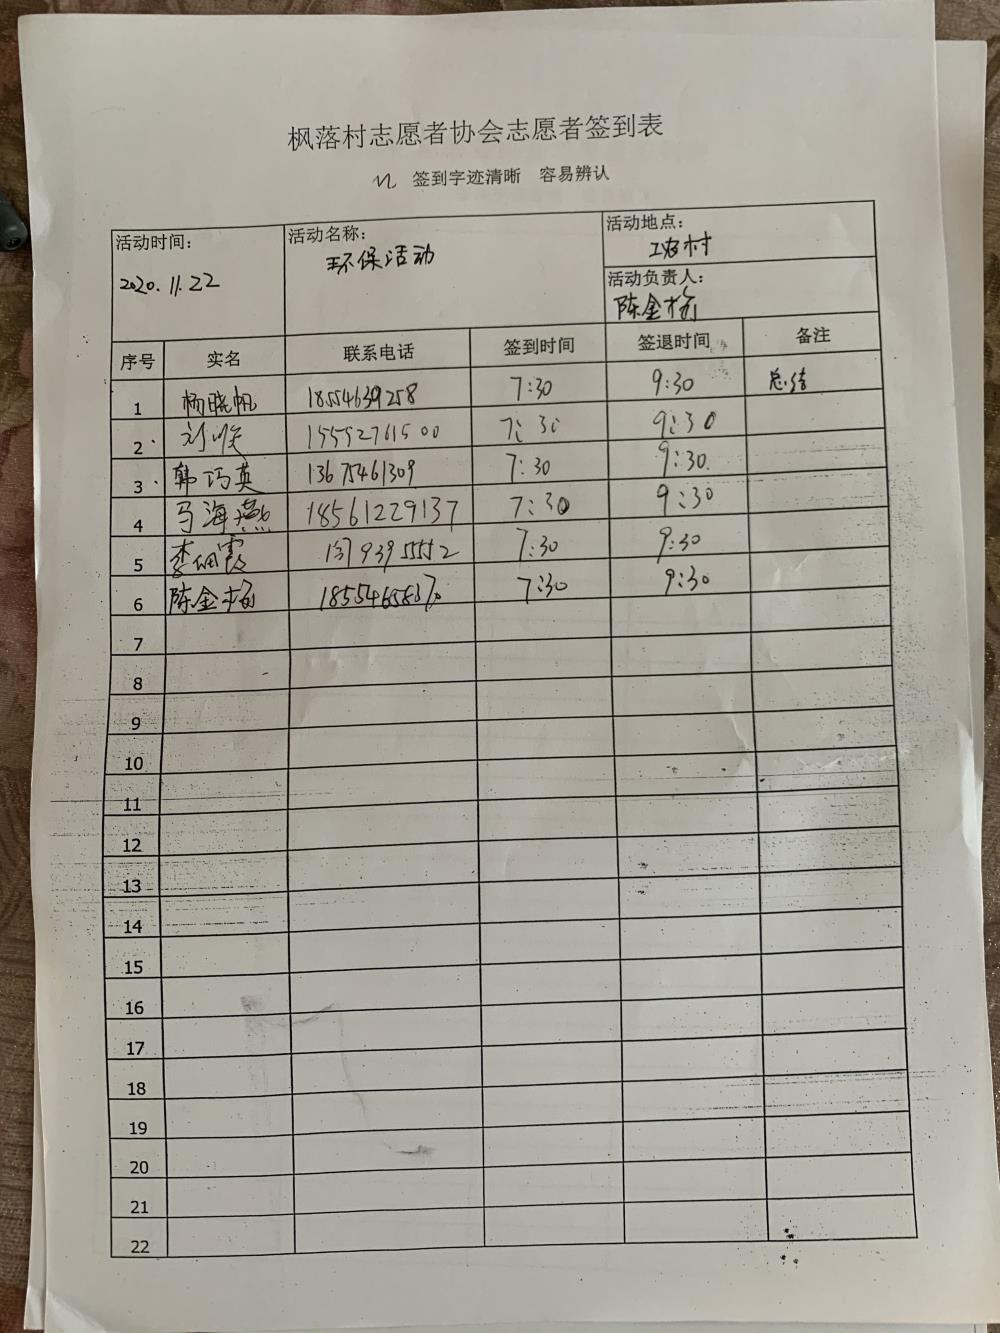 枫落村志愿者协会志愿者签到表
签到字迹清晰 容易辨认
活动时间: 活动名称: 活动地点:
2020.11.22 环保活动 工农村
活动负责人:
陈金梅
序号 实名 联系电话 签到时间 签退时间 备注
1 杨晓帆 18554639258 7:30 9:30 总结
2 刘顺 15552761500 7:30 9:30
3 韩巧英 13675461309 7:30 9:30
4 马海燕 18561229137 7:30 9:30
5 李佩霞 7:30 9:30
6 陈金梅 7:30 9:30
7
8
9
10
11
12
13
14
15
16
17
18
19
20
21
22